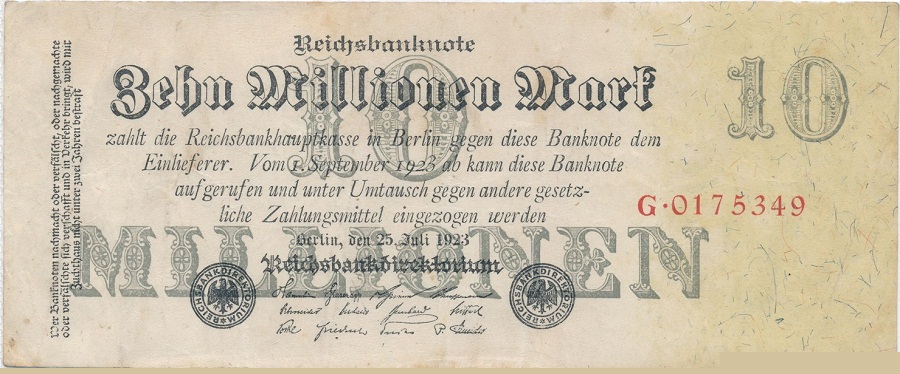 Reichsbanknote
Zehn Millionen Mark
10
10
zahlt die Reichsbankhauptkasse in Berlin gegen diese Banknote dem
Einlieferer. Vom 1. September 1923 ab kann diese Banknote
aufgerufen und unter Umtausch gegen andere gesetz-
liche Zahlungsmittel eingezogen werden
G·0175349
MILLIONEN
Berlin, den 25. Juli 1923
Reichsbankdirektorium
REICHSBANKDIREKTORIUM
REICHSBANKDIREKTORIUM
Wer Banknoten nachmacht oder verfälscht, oder nachgemachte
oder verfälschte sich verschafft und in Verkehr bringt, wird mit
Zuchthaus nicht unter zwei Jahren bestraft